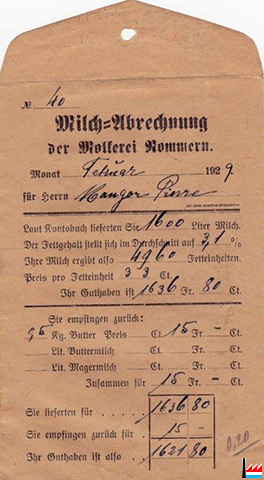 № 40
Milch=Abrechnung
der Molkerei Nommern.
Monat Februar 1929
für Herrn Mangor Pierre
Laut Kontobuch lieferten Sie 1600 Liter Milch.
Der Fettgehalt stellt sich im Durchschnitt auf 3,1 %
Ihre Milch ergibt also 4960 Fetteinheiten.
Preis pro Fetteinheit 33 Ct.
Ihr Guthaben ist 1636 Fr. 80 Ct.
Sie empfingen zurück:
Kg. Butter Preis Ct. 15 Fr. - Ct.
Lit. Buttermilch Ct. Fr. Ct.
Lit. Magermilch Ct. Fr. Ct.
Zusammen für 15 Fr. - Ct.
Sie lieferten für 1636 80
Sie empfingen zurück für 15 -
Ihr Guthaben ist also 1621 80
0,20